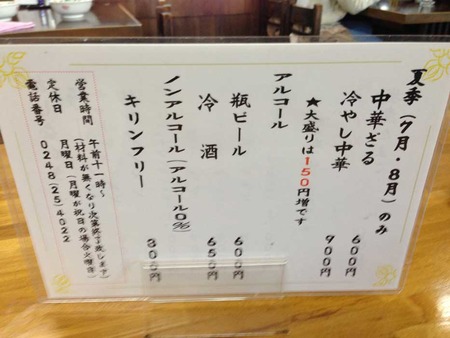 夏季（7月・8月）のみ
中華ざる　600円
冷やし中華　900円
★大盛りは150円増です
アルコール
瓶ビール　600円
冷酒　650円
ノンアルコール（アルコール0%）
キリンフリー　300円
営業時間　午前十一時〜
（材料が無くなり次第終了致します）
定休日　月曜日（月曜が祝日の場合火曜日）
電話番号　0248（25）4022